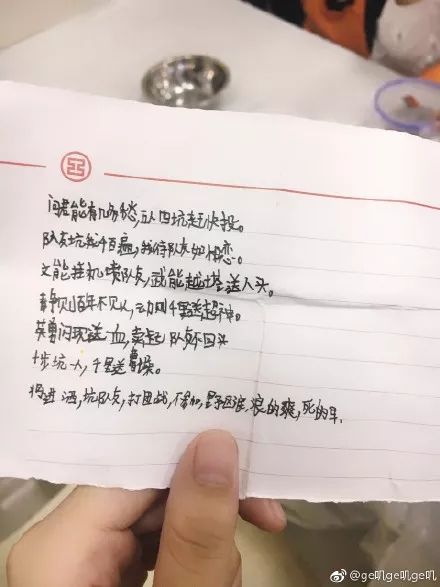 问君能有几多愁,五人四坑赶快投。
队友坑我千百遍,我待队友如初恋。
文能挂机喷队友,武能越塔送人头。
静则百年不见人,动则千里送超神。
英勇闪现送一血,卖起队友不回头
十步坑一人,千里送操。
将进酒,坑队友,打团战,不参加,野区浪,浪的爽,死的早.
@ge叽ge叽ge叽